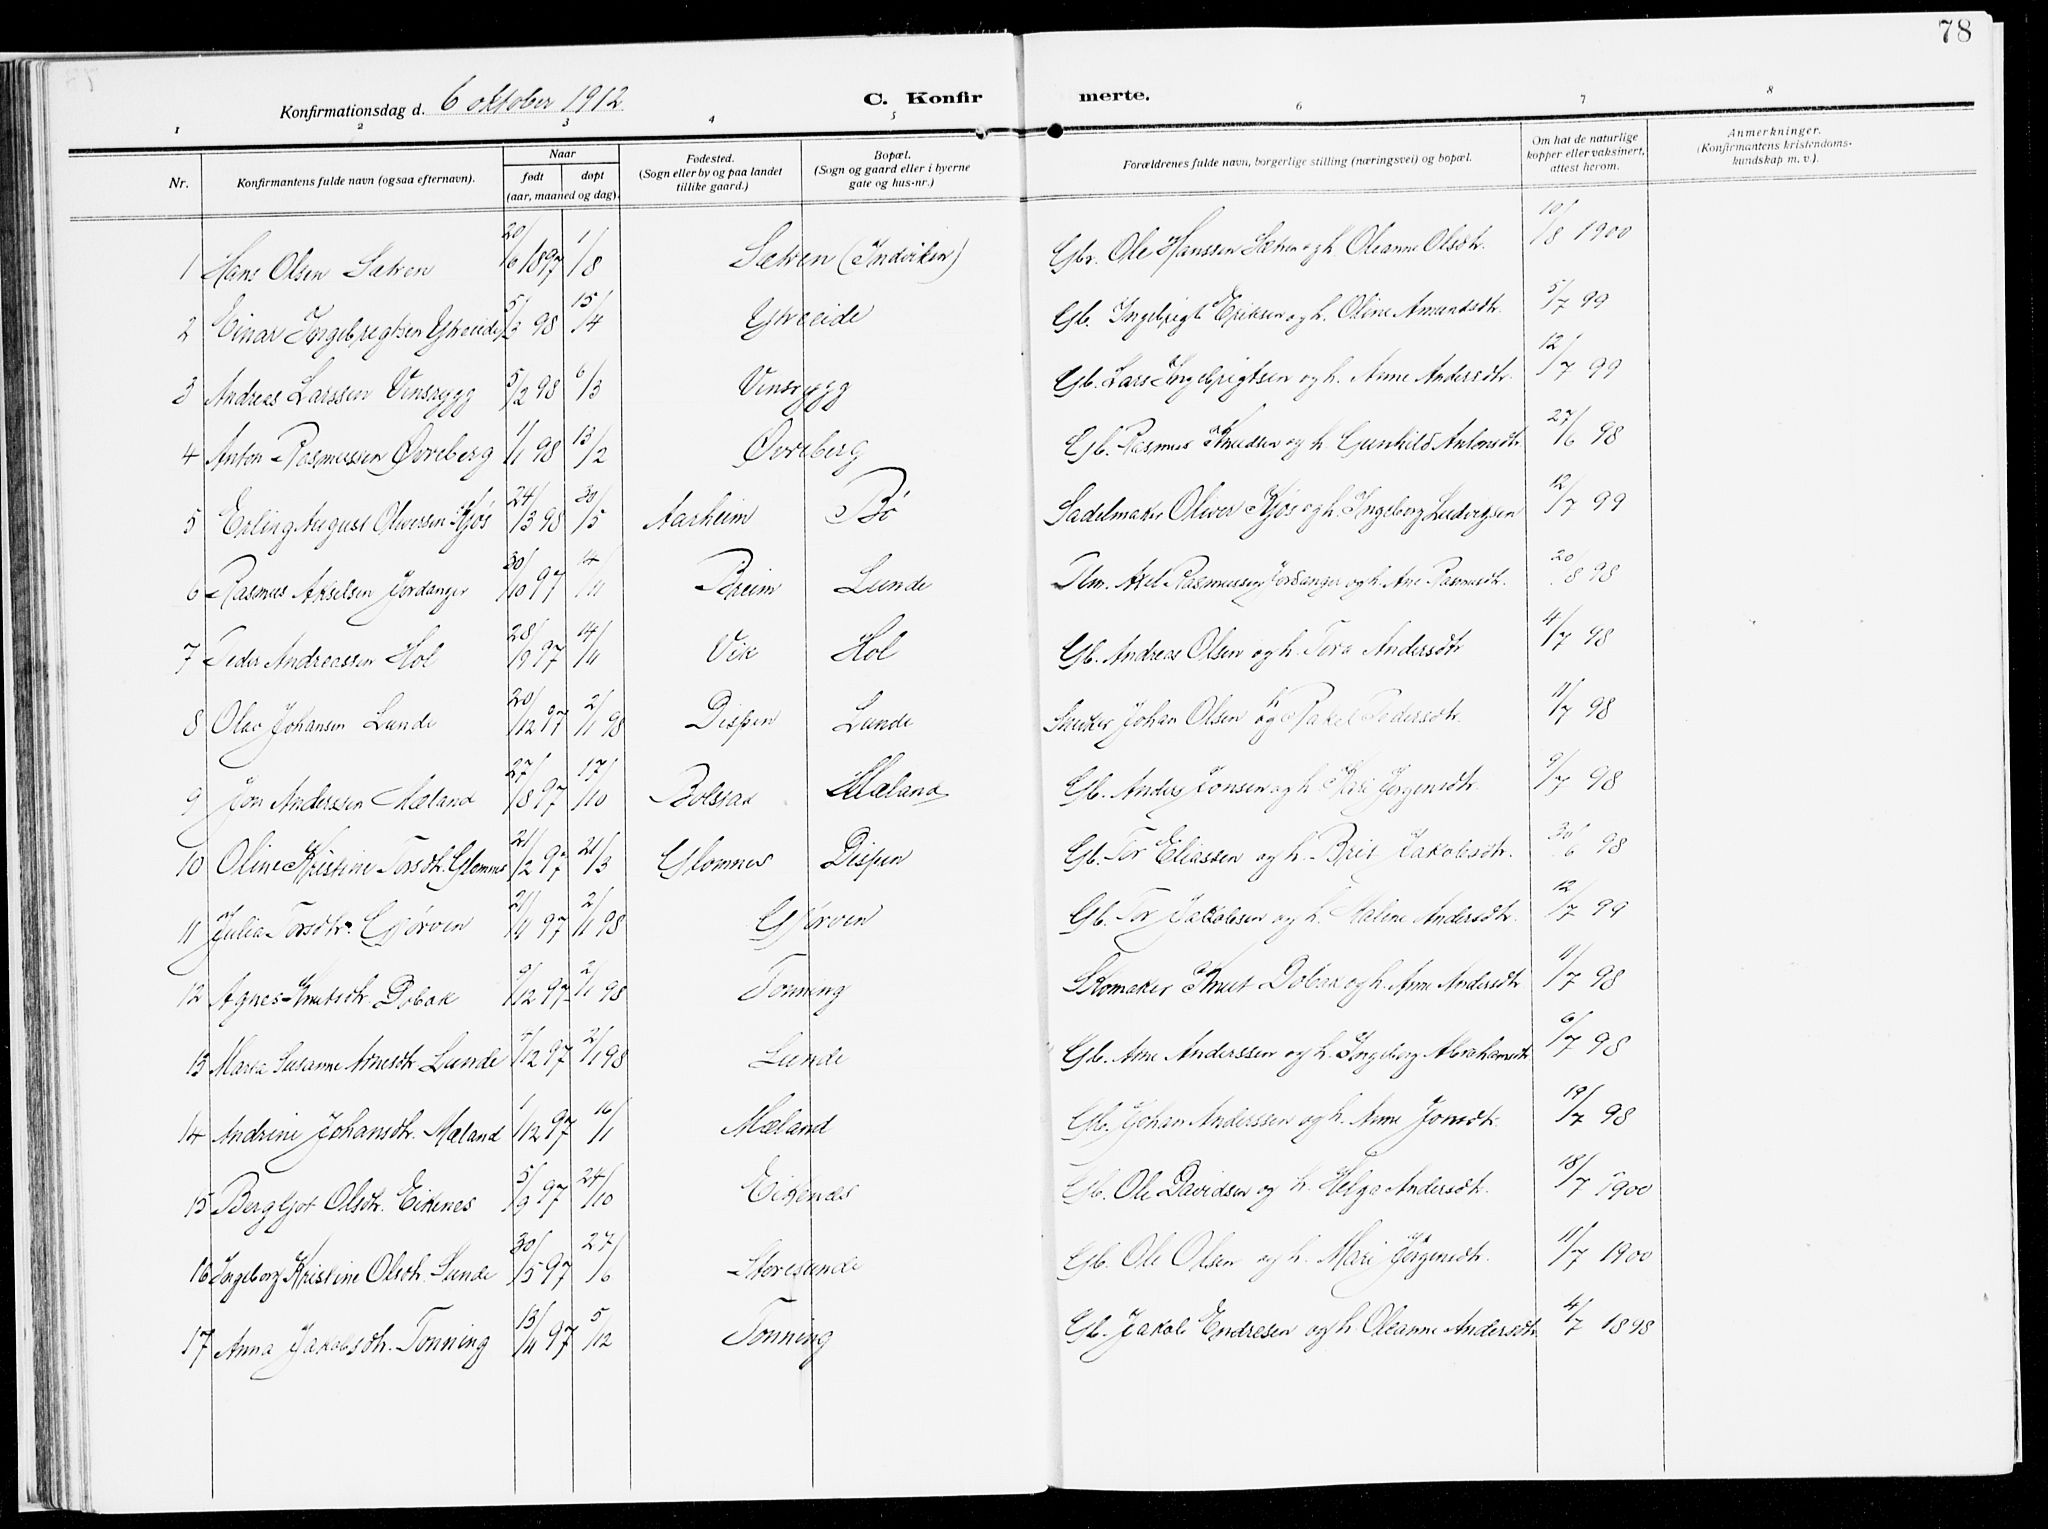 78
Konfirmationsdag d. 6 oktober 1912. C. Konfirmerte.
1 2 3 4 5 6 7 8
Nr. Konfirmantens fulde navn (ogsaa efternavn). Naar født døpt (aar, maaned og dag). Fødested. (Sogn eller by og paa landet tillike gaard.) Bopæl. (Sogn og gaard eller i byerne gate og hus-nr.) Forældrenes fulde navn, borgerlige stilling (næringsvei) og bopæl. Om hat de naturlige kopper eller vaksinert, attest herom. Anmerkninger. (Konfirmantens kristendoms-kundskap m. v.).
1 Hans Olsen Sætren 20/6 1897 1/8 Sætren (Indviken) Gbr. Ole Hanssen Sætren og h. Oleanne Olsdtr. 10/8 1900
2 Einar Ingebrigtsen Ytreeide 5/3 98 15/4 Ytreeide Gb. Ingebrigt Eriksen og h. Oline Amundsdtr. 5/7 99
3 Andreas Larssen Vinsrygg 5/2 98 6/3 Vinsrygg Gb. Lars Ingebrigtsen og h. Anne Andersdtr. 12/7 99
4 Anton Rasmussen Øvreberg 1/1 98 13/2 Øvreberg Gb. Rasmus Knudsen og h. Gunhild Antonsdtr. 27/6 98
5 Erling August Oliverssen Kjøs 24/3 98 30/5 Aarheim Bø Sadelmaker Oliver Kjøs og h. Ingeborg Ludvigsen 12/7 99
6 Rasmus Akselsen Jordanger 30/10 97 14/11 Røheim Lunde Tlm. Axel Rasmussen Jordanger og h. Ane Rasmusdtr. 20/8 98
7 Peder Andreassen Hol 28/9 97 14/11 Vik Hol Gb. Andreas Olsen og h. Tora Andersdtr 4/7 98
8 Olav Johansen Lunde 20/12 97 2/1 98 Dispen Lunde Snedker Johan Olsen og h. Rakel Pedersdtr. 11/7 98
9 Jon Anderssen Mæland 27/8 97 17/10 Bolstad Mæland Gb. Anders Jonsen og h. Mari Jørgensdtr. 9/7 98
10 Oline Kristine Torsdtr. Glomnes 21/2 97 21/3 Glomnes Dispen Gb. Tor Eliassen og h. Brit Jakobsdtr. 30/6 98
11 Julia Torsdtr. Gjørven 21/11 97 2/1 98 Gjørven Gb. Tor Jakobsen og h. Malene Andersdtr. 12/7 99
12 Agnes Knutsdtr. Dobak 9/12 97 2/1 98 Tonning Skomaker Knut Dobak og h. Anne Andersdtr 11/7 98
13 Maria Susanne Arnesdtr. Lunde 4/12 97 2/1 98 Lunde Gb. Arne Anderssen og h. Ingeborg Abrahamsdtr 6/7 98
14 Andrine Johansdtr. Mæland 1/12 97 16/1 Mæland Gb. Johan Anderssen og h. Anne Jonsdtr. 19/7 98
15 Bergljot Olsdtr. Eikenes 5/9 97 24/10 Eikenes Gb. Ole Davidsen og h. Helga Andersdtr. 18/7 1900
16 Ingeborg Kristine Olsdtr. Sunde 30/5 97 27/6 Storesunde Gb. Ole Olsen og h. Mari Jørgensdtr. 11/7 1900
17 Anna Jakobsdtr. Tonning 13/11 97 5/12 Tonning Gb. Jakob Endresen og h. Oleanne Andersdtr. 4/7 1898